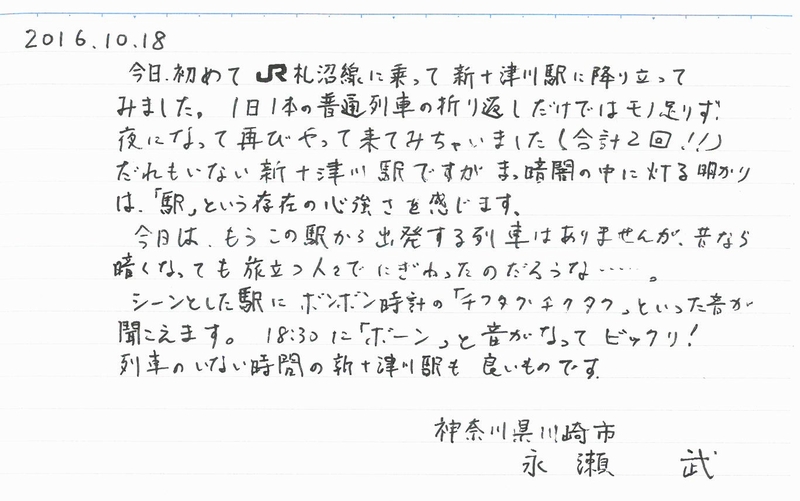 2016.10.18
今日、初めて JR札沼線に乗って 新十津川駅に降り立って
みました。1日1本の普通列車の折り返しだけではモノ足りず、
夜になって再びやって来てみちゃいました(合計2回!!)
だれもいない新十津川駅ですが まっ暗闇の中に灯る明かり
は、「駅」という存在の心強さを感じます。
今日は、もうこの駅から出発する列車はありませんが、昔なら
暗くなっても旅立つ人々でにぎわったのだろうな……。
シーンとした駅に ボンボン時計の「チクタク チクタク」といった音が
聞こえます。 18:30に「ボーン」と音がなって ビックリ!
列車のいない時間の新十津川駅も 良いものです。
神奈川県川崎市
永瀬 武